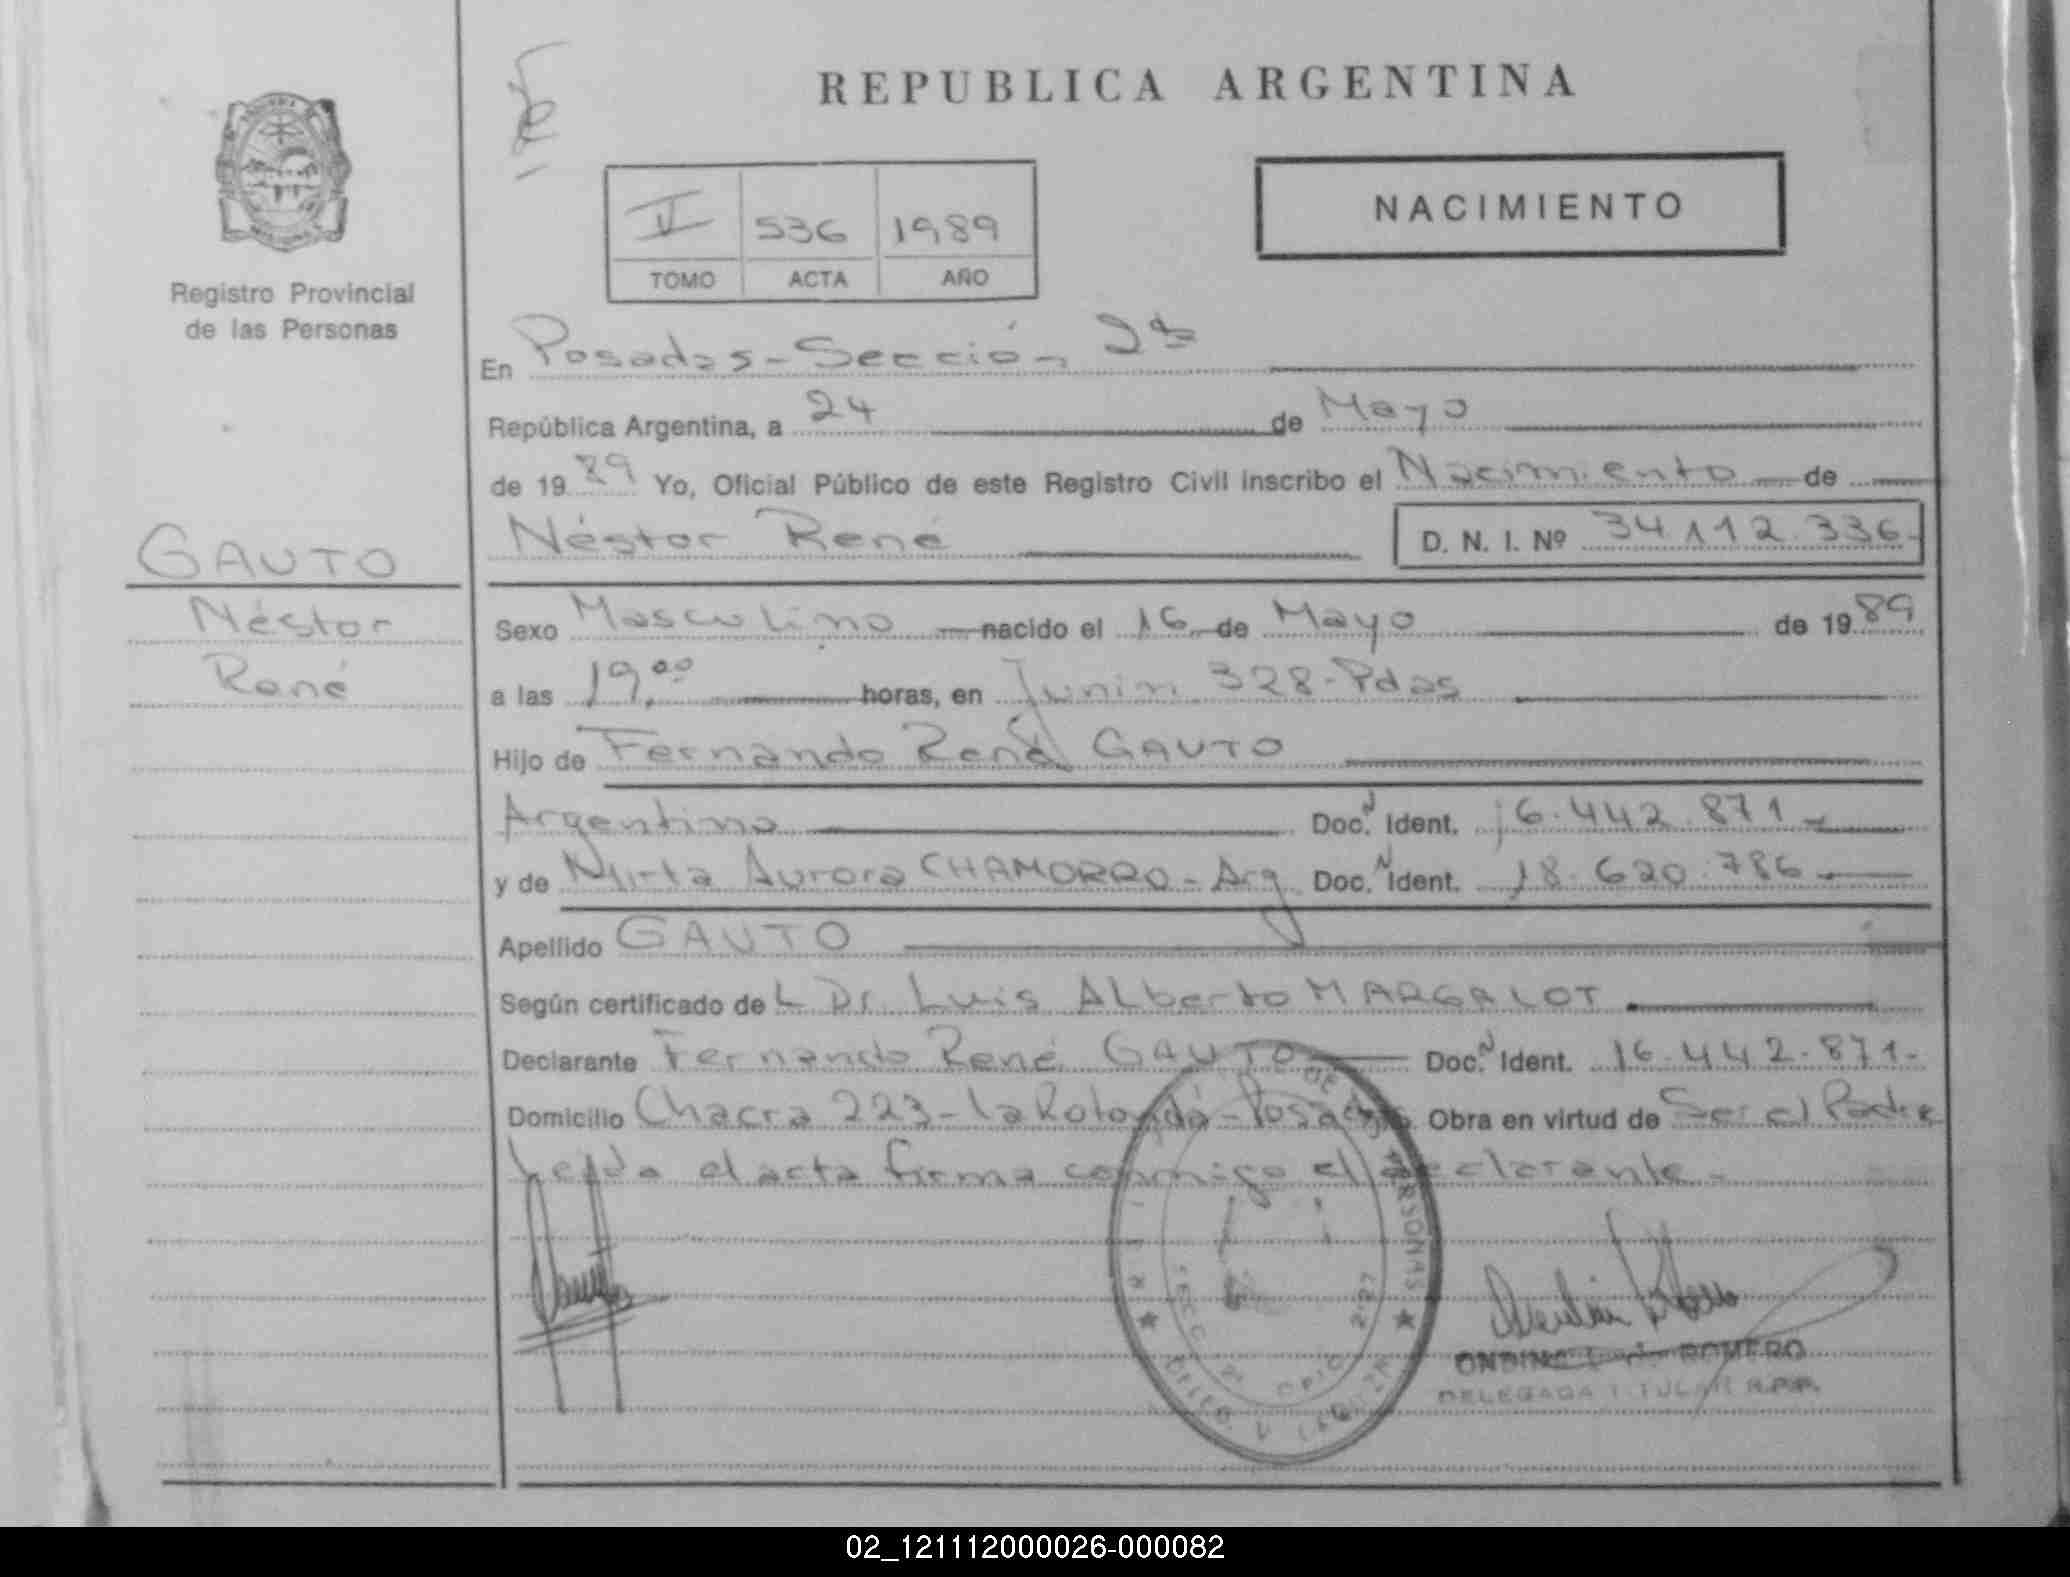 REPUBLICA ARGENTINA
NACIMIENTO
II 536 1989
TOMO ACTA AÑO
Registro Provincial
de las Personas
En Posadas - Sección 2da
República Argentina, a 24 de Mayo
de 1989 Yo, Oficial Público de este Registro Civil inscribo el Nacimiento de
Néstor René D. N. I. Nº 34.112.336-
GAUTO
Néstor
René
Sexo Masculino nacido el 16 de Mayo de 1989
a las 19,00 horas, en Junín 328-Pdas
Hijo de Fernando René GAUTO
Argentino Doc. N Ident. 16.442.871-
y de Mirta Aurora CHAMORRO - Arg Doc. N Ident. 18.620.786-
Apellido GAUTO
Según certificado de L Dr. Luis ALberto MARGALOT
Declarante Fernando René GAUTO Doc. N Ident. 16.442.871-
Domicilio Chacra 223 - la Rotonda - Posadas. Obra en virtud de Ser el Padre
Leída el acta firma conmigo el declarante.-
DE PERSONAS
ROMERO
DELEGADA TITULAR R.P.P.
02_121112000026-000082